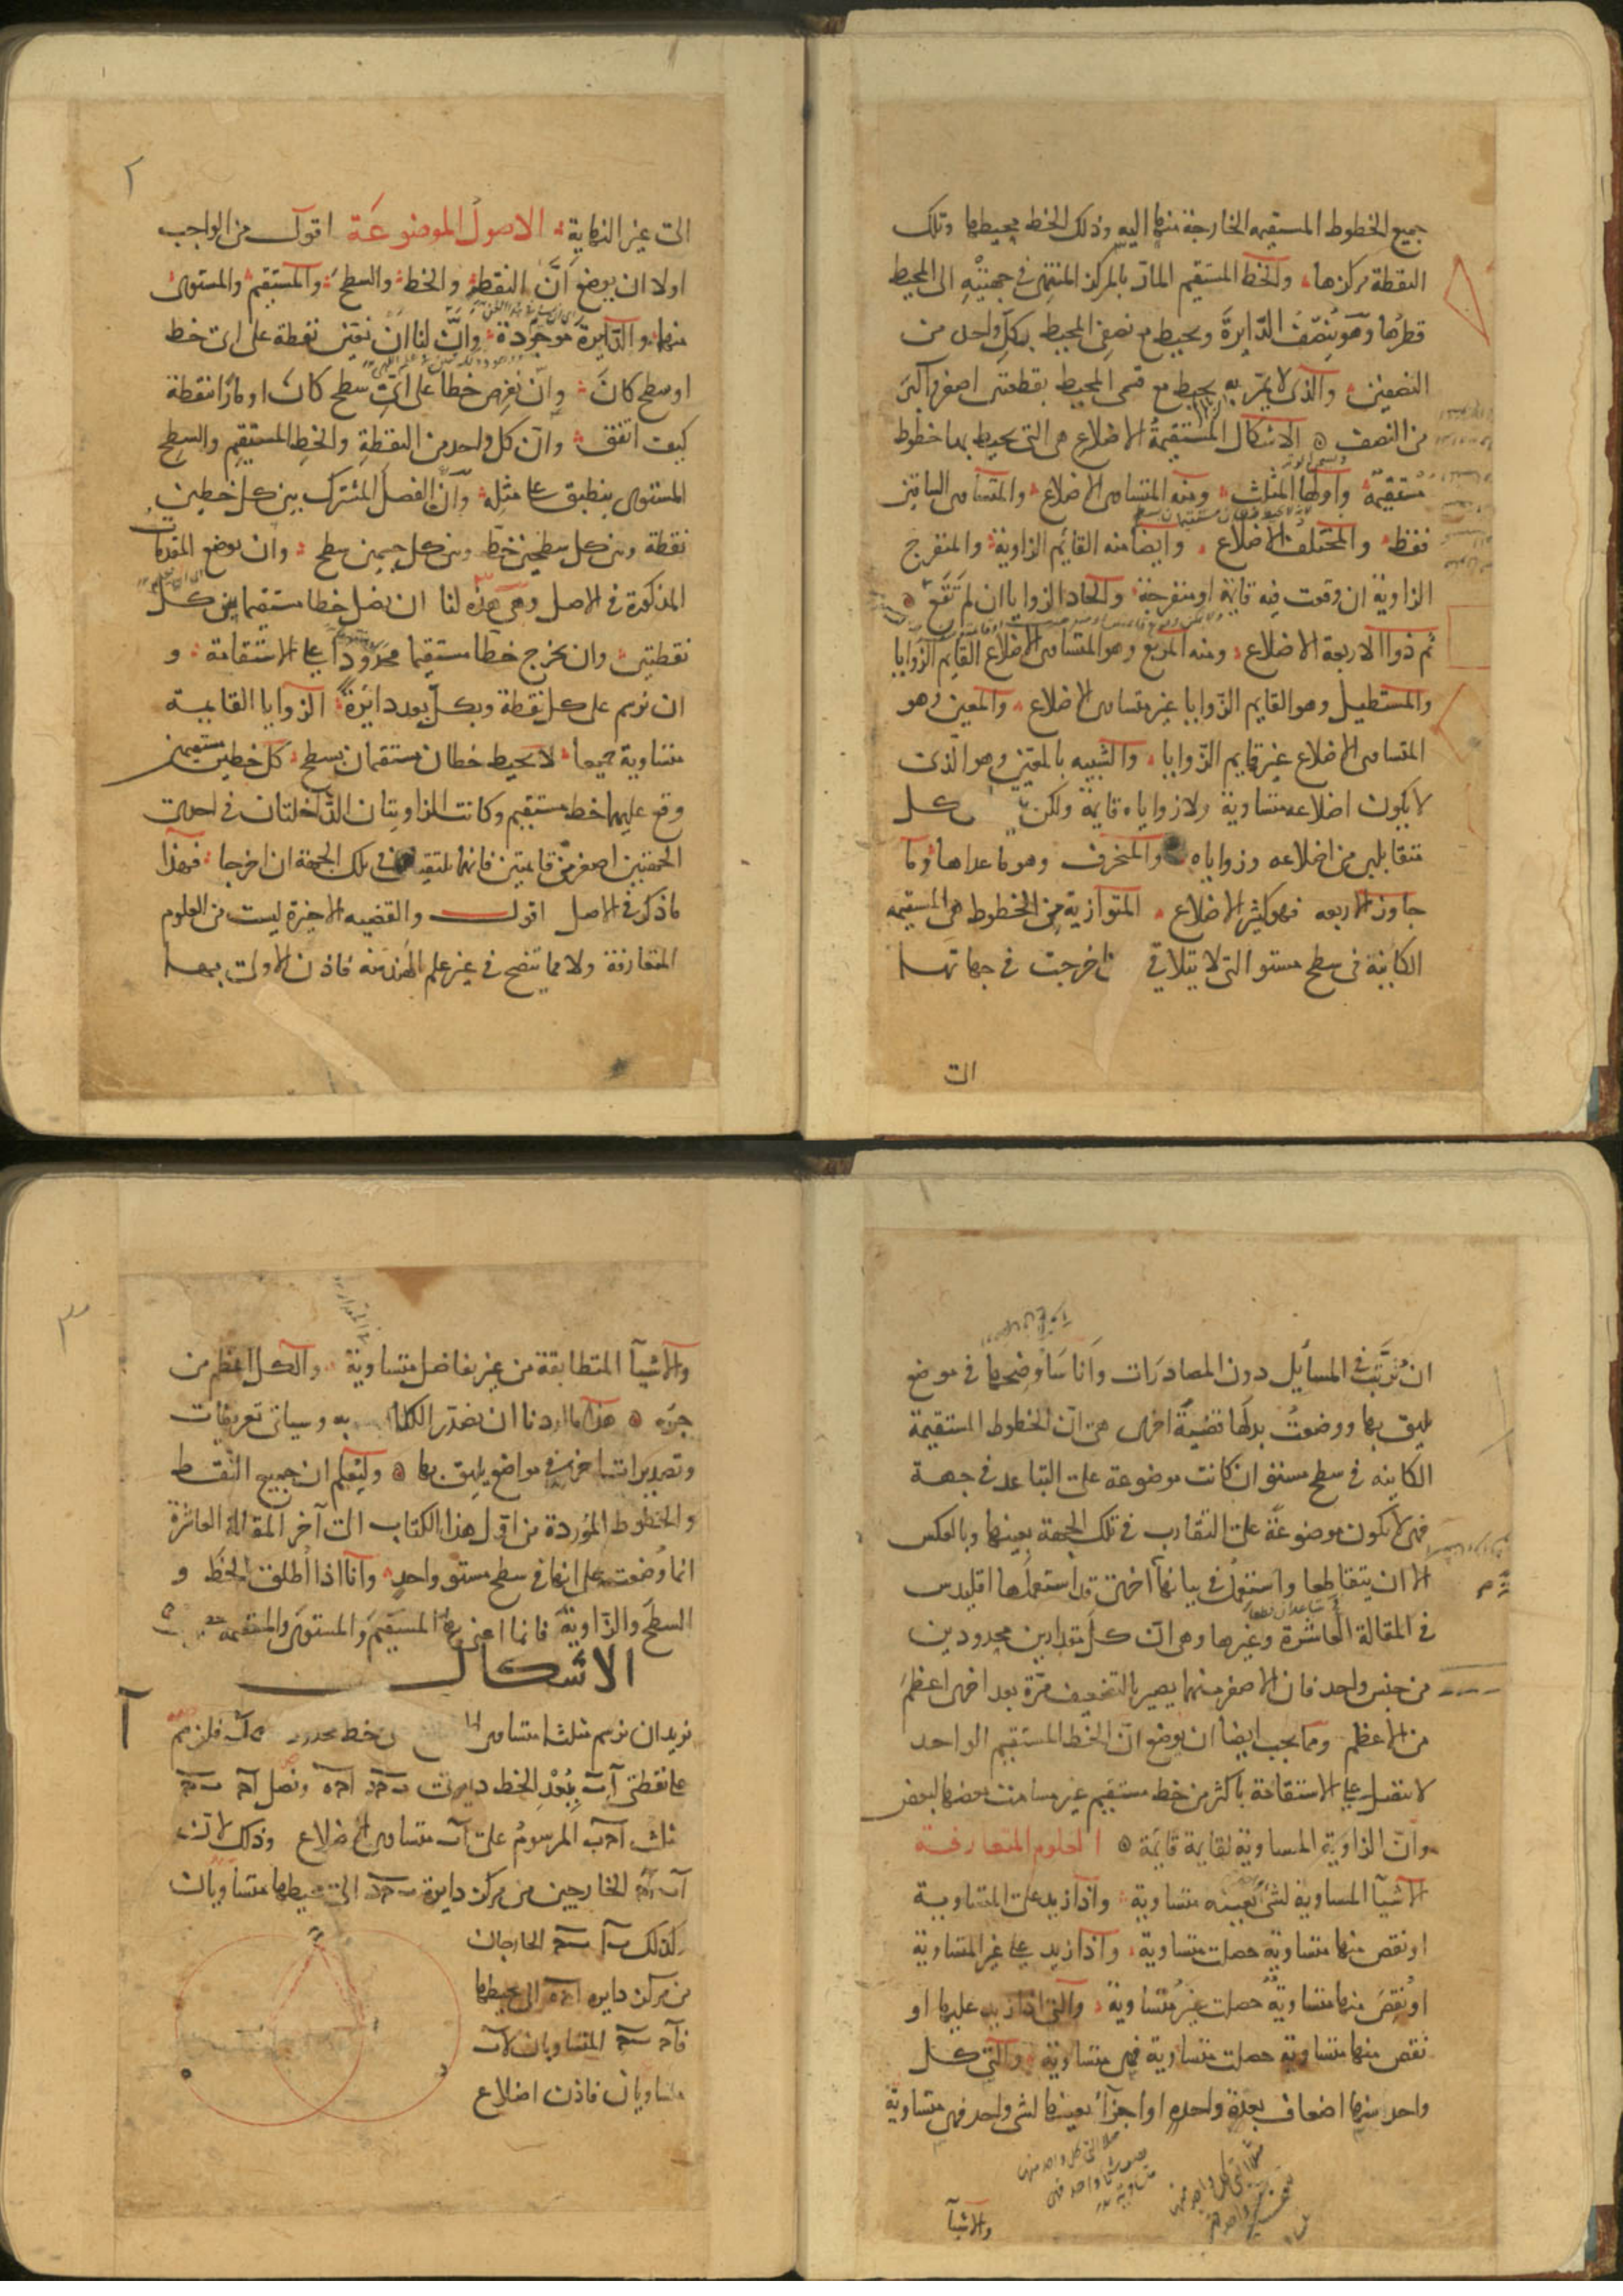 جميع الخطوط المستقيمه الخارجة منها اليه وذلك الخط محيطها وتلك
النقطة مركزها والخط المستقيم المار بالمركز المنتهى فى جهتيه الى المحيط
قطرها وهو ينصف الدايرة ويحيط مع نصفى المحيط بكل واحد من
النصفين والذى لا يمر به يحيط مع قسمى المحيط بقطعتين اصغر واكبر
من النصف الاشكال المستقيمة الاضلاع هى التى يحيط بها خطوط
مستقيمة واولها المثلث ومنه المتساوى الاضلاع والمتساوى الساقين
فقط والمختلف الاضلاع وايضا منه القائم الزاوية والمنفرج
الزاوية ان وقعت فيه قايمة او منفرجة والحاد الزوايا ان لم تقع
ثم ذوا الاربعة الاضلاع ومنه المربع وهو المتساوى الاضلاع القايم الزوايا
والمستطيل وهو القايم الزوايا غير متساوى الاضلاع والمعين وهو
المتساوى الاضلاع غير قايم الزوايا والشبيه بالمعين وهو الذى
لا يكون اضلاعه متساوية ولا زواياه قايمة ولكن كل
متقابلين من اضلاعه وزواياه والمنحرف وهو ما عداها وما
جاوز الاربعه فهو كثير الاضلاع المتوازية من الخطوط هى المستقيمه
الكاينة فى سطح مستو التى لا يتلاقى اخرجت فى جهاتها
الى
٢
الى غير النهاية الاصول الموضوعة اقول من الواجب
اولا ان يوضع ان النقطة والخط والسطح والمستقيم والمستوى
منهما والدايرة موجودة وان لنا ان نعين نقطة على اى خط
او سطح كان وان نفرض خطا على اى سطح كان او مارا بنقطة
كيف اتفق وان كل واحد من النقطة والخط المستقيم والسطح
المستوى ينطبق على مثله وان الفصل المشترك بين كل خطين
نقطة وبين كل سطحين خط وبين كل جسمين سطح وان يوضع المقدمات
المذكورة فى الاصل وهى هذه لنا ان نصل خطا مستقيما بين كل
نقطتين وان نخرج خطا مستقيما محدودا على الاستقامة و
ان نرسم على كل نقطة وبكل بعد دائرة الزوايا القايمة
متساوية جميعا لا يحيط خطان مستقيمان بسطح كل خطين مستقيمين
وقع عليهما خط مستقيم وكانت الزاويتان الداخلتان فى احدى
الجهتين اصغر من قايمتين فانهما تلتقيان فى تلك الجهة ان اخرجا فهذا
ما ذكر فى الاصل اقول والقضيه الاخيرة ليست من العلوم
المتعارفة ولا مما يتضح فى غير علم الهندسة فاذن الاولى بها
ان ترتب فى المسايل دون المصادرات وانا ساوضحها فى موضع
يليق بها ووضعت بدلها قضية اخرى هى ان الخطوط المستقيمة
الكاينه فى سطح مستو ان كانت موضوعة على التباعد فى جهة
فهى لا تكون موضوعة على التقارب فى تلك الجهة بعينها وبالعكس
الا ان يتقاطعا واستعمل فى بيانها اخرى قد استعملها اقليدس
فى المقالة العاشرة وغيرها وهى ان كل مقدارين محدودين
من جنس واحد فان الاصغر منهما يصير بالتضعيف مرة بعد اخرى اعظم
من الاعظم ومما يجب ايضا ان يوضع ان الخط المستقيم الواحد
لا يتصل على الاستقامة باكثر من خط مستقيم غير مسامت بعضها لبعض
وان الزاوية المساوية لقايمة قائمة العلوم المتعارفة
الاشيآ المساوية لشئ بعينه متساوية واذا زيد على المتساوية
او نقص منها متساوية حصلت متساوية واذا زيد على غير المتساوية
او نقص منها متساوية حصلت غير متساوية والتى اذا زيد عليها او
نقص منها متساوية حصلت متساوية فهى متساوية والتى كل
واحد منها اضعاف بعدة واحده او اجزآ بعينها لشئ واحد فهى متساوية
والاشيآ
٣
والاشيآ المتطابقة من غير تفاضل متساوية والكل اعظم من
جزئه هذا ما اردنا ان نصدر الكلام به وسياتى تعريفات
وتصديرات اخر فى مواضع يليق بها وليعلم ان جميع النقط
والخطوط الموردة من اول هذا الكتاب الى آخر المقالة العاشرة
انما وضعت على انها فى سطح مستو واحد وانا اذا اطلقت الخط و
السطح والزاوية فانما اعنى بها المستقيم والمستوى والمستقيمة
الاشكال
آ
نريد ان نرسم مثلثا متساوى خط محدود كاب فلنرسم
على نقطتى آب ببعد الخط دايرتى ونصل
مثلث آحب المرسوم على آب متساوى الاضلاع وذلك لان
آب آح الخارجين من مركز دايرة الى محيطها متساويان
وكذلك الخارجان
من مركز دايرة الى محيطها
المتساويان لآب
متساويان فاذن اضلاع